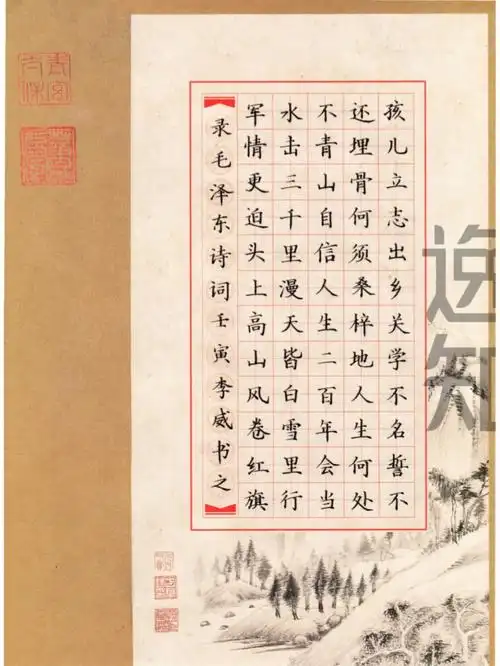 孩儿立志出乡关学不名誓不
还埋骨何须桑梓地人生何处
不青山自信人生二百年会当
水击三千里漫天皆白雪里行
军情更迫头上高山风卷红旗
录毛泽东诗词壬寅李威书之